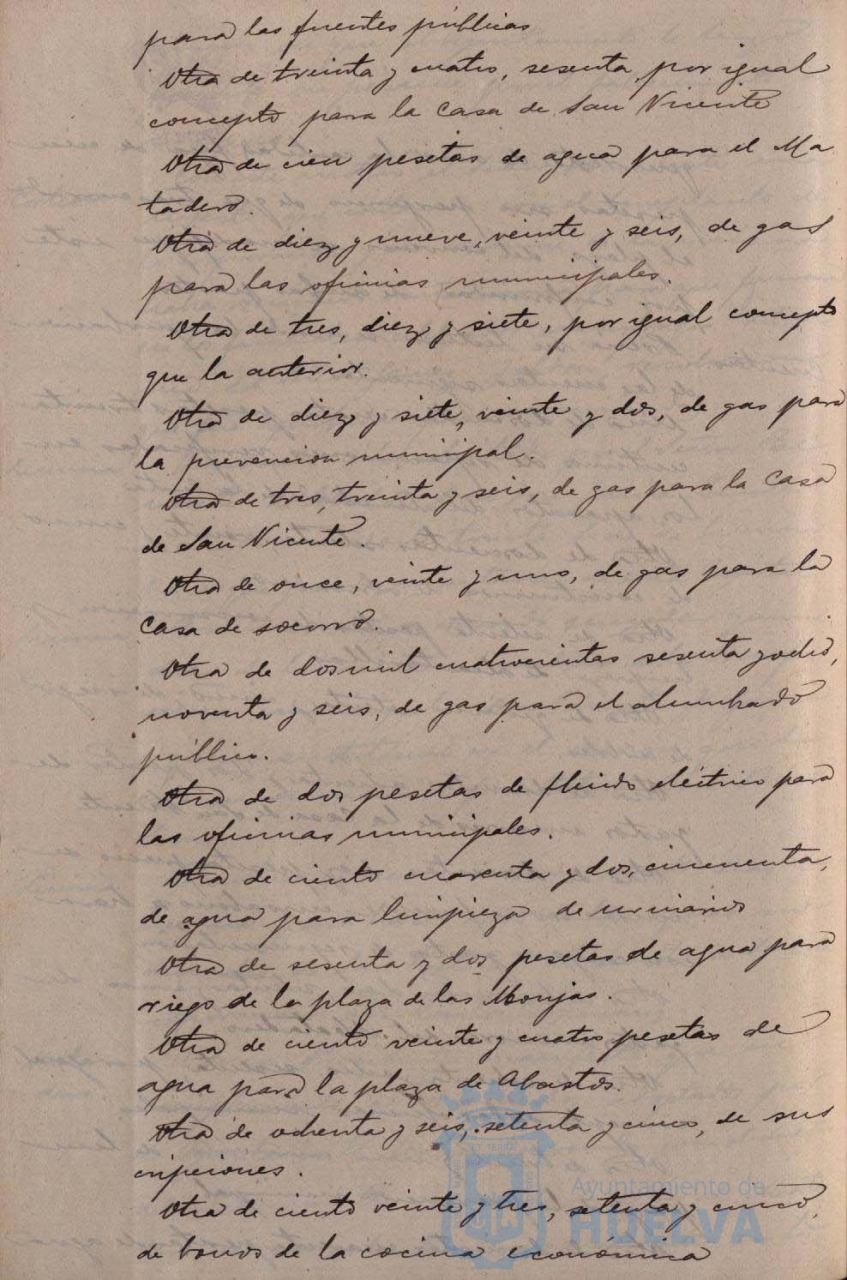 para las fuentes públicas
Otra de treinta y cuatro, sesenta, por igual
concepto para la casa de San Vicente
Otra de cien pesetas de agua para el Ma
tadero.
Otra de diez y nueve, veinte y seis, de gas
para las oficinas municipales.
Otra de tres, diez y siete, por igual concepto
que la anterior.
Otra de diez y siete, veinte y dos, de gas para
la prevencion municipal.
Otra de tres, treinta y seis, de gas para la Casa
de San Vicente.
Otra de once, veinte y uno, de gas para la
Casa de socorro.
Otra de dosmil cuatrocientas sesenta y ocho,
noventa y seis, de gas para el alumbrado
público.
Otra de dos pesetas de fluido eléctrico para
las oficinas municipales.
Otra de ciento cuarenta y dos, cincuenta,
de agua para limpieza de urinarios
Otra de sesenta y dos pesetas de agua para
riego de la plaza de las Monjas.
Otra de ciento veinte y cuatro pesetas de
agua para la plaza de Abastos.
Otra de ochenta y seis, setenta y cinco, de sus
cripciones.
Otra de ciento veinte y tres, setenta y cinco,
de bonos de la cocina económica
Ayuntamiento de
HUELVA